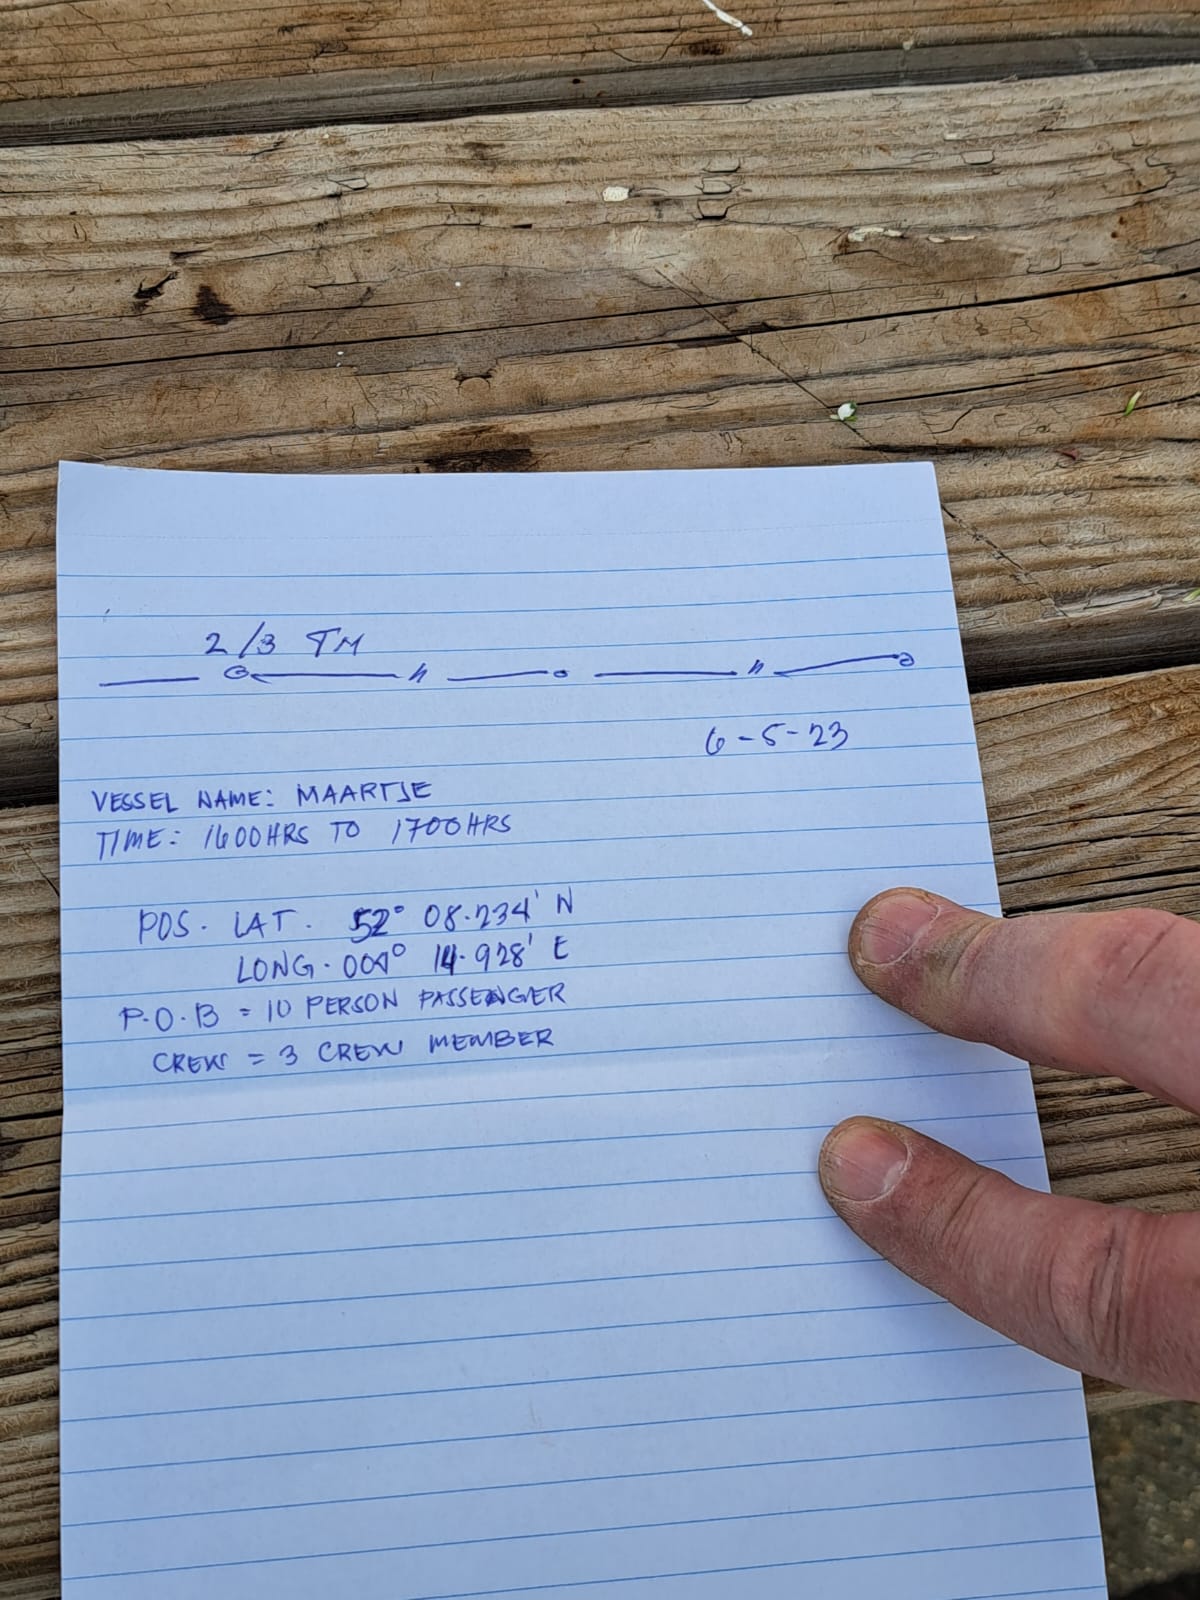 2/3 TM
6-5-23
VESSEL NAME: MAARTJE
TIME: 1600HRS TO 1700HRS
POS. LAT. 52° 08.234' N
LONG. 004° 14.928' E
P.O.B = 10 PERSON PASSENGER
CREW = 3 CREW MEMBER